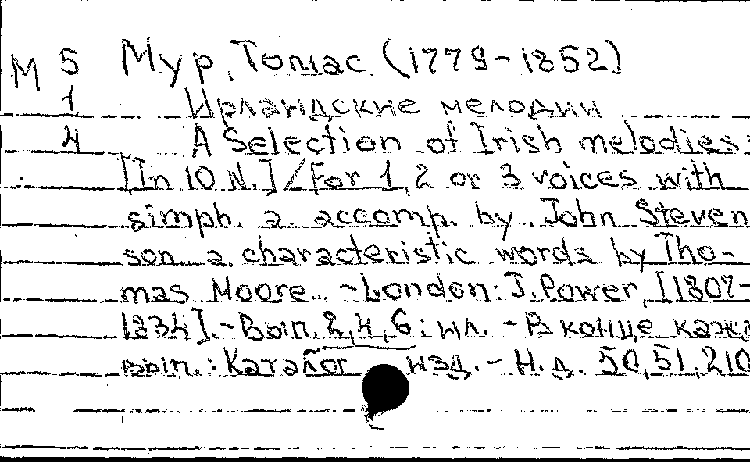 М 5 Мур, Томас (1779-1852)
1 Ирландские мелодии
М A Selection of Irish melodies:
[In 10 N.] / For 1, 2 or 3 voices with
simph. a. accomp. by John Steven
son a characteristic words by Tho-
mas Moore. - London: J. Power, [1807-
1834]. - Вып. 2, 4, 6: ил. - В конце кажд
вып.: Каталог изд. - Н. д. 50, 51, 210